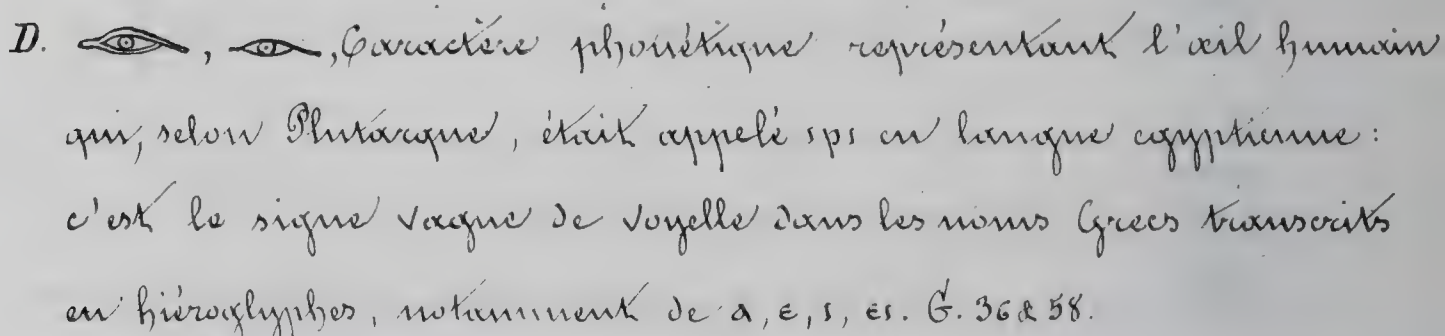 D. 𓁹, 𓁹, Caractère phonétique représentant l'œil humain
qui, selon Plutarque, était appelé ιρι en langue egyptienne :
c'est le signe vague de voyelle dans les noms Grecs transcrits
en hiéroglyphes, notamment de α, ε, ι, ει. G. 36 & 58.